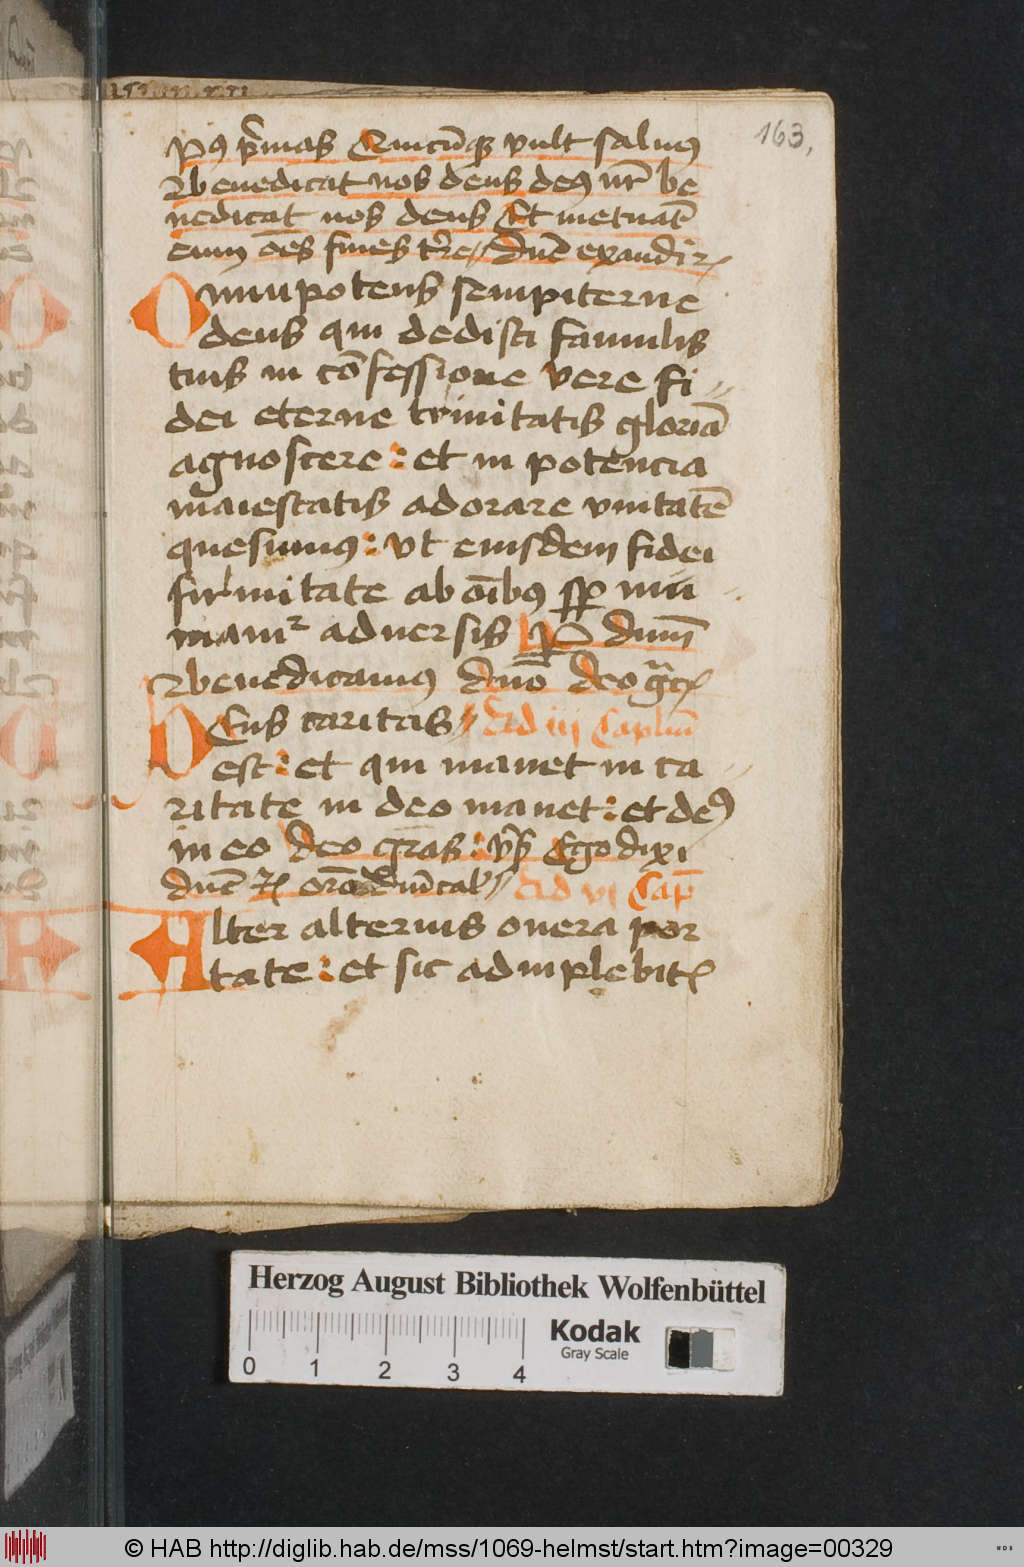 163,
p9 p̄mas Quicūqꝫ vult saluꝰ
Benedicat nos deus deꝰ nr̄ be
nedicat nos deus Et metuāt
eum oēs fines tr̄e dn̄e exaudi
Omnipotens sempiterne
deus qui dedisti famulis
tuis in cōfessione vere fi
dei eterne trinitatis gloriā
agnoscere : et in potencia
maiestatis adorare vnitatē
quesumꝰ : vt eiusdem fidei
firmitate ab oīb9 sꝑ mu
niam᷑ aduersis P dnm̄
Benedicamꝰ dn̄o deo
Deus caritas Ad iij Caplm̄
est : et qui manet in ca
ritate in deo manet : et deꝰ
in eo deo grās : Ego dixi
dn̄e orō Ad vj Cap̄
Alter alterius onera por
tate : et sic adimplebitꝭ
Herzog August Bibliothek Wolfenbüttel
Kodak
Gray Scale
0 1 2 3 4
© HAB http://diglib.hab.de/mss/1069-helmst/start.htm?image=00329